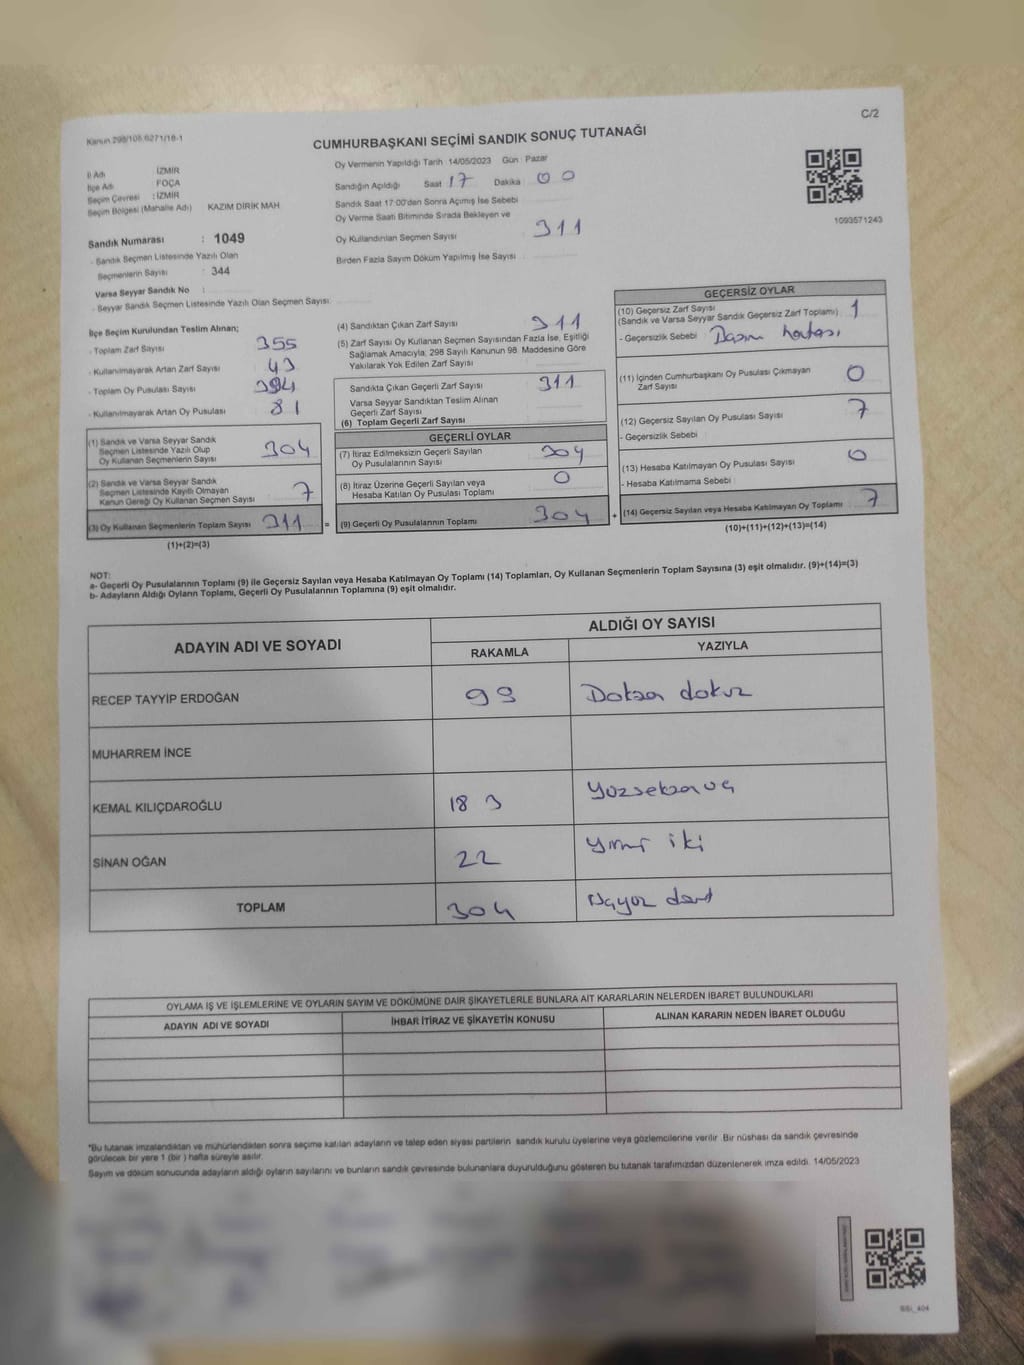 Kanun 298/105 6271/16-1
C/2
CUMHURBAŞKANI SEÇİMİ SANDIK SONUÇ TUTANAĞI
İl Adı İZMİR
İlçe Adı FOÇA
Seçim Çevresi : İZMİR
Seçim Bölgesi (Mahalle Adı) KAZIM DİRİK MAH
Sandık Numarası : 1049
- Sandık Seçmen Listesinde Yazılı Olan
Seçmenlerin Sayısı : 344
Varsa Seyyar Sandık No :
- Seyyar Sandık Seçmen Listesinde Yazılı Olan Seçmen Sayısı:
Oy Vermenin Yapıldığı Tarih 14/05/2023 Gün : Pazar
Sandığın Açıldığı Saat 17 Dakika 00
Sandık Saat 17:00'den Sonra Açımış İse Sebebi
Oy Verme Saati Bitiminde Sırada Bekleyen ve
Oy Kullandırılan Seçmen Sayısı 311
Birden Fazla Sayım Döküm Yapılmış İse Sayısı
1093571243
İlçe Seçim Kurulundan Teslim Alınan;
- Toplam Zarf Sayısı 355
- Kullanılmayarak Artan Zarf Sayısı 43
- Toplam Oy Pusulası Sayısı
- Kullanılmayarak Artan Oy Pusulası 81
(1) Sandık ve Varsa Seyyar Sandık
Seçmen Listesinde Yazılı Olup
Oy Kullanan Seçmenlerin Sayısı 304
(2) Sandık ve Varsa Seyyar Sandık
Seçmen Listesinde Kayıtlı Olmayan
Kanun Gereği Oy Kullanan Seçmen Sayısı 7
(3) Oy Kullanan Seçmenlerin Toplam Sayısı 311 =
(1)+(2)=(3)
(4) Sandıktan Çıkan Zarf Sayısı 311
(5) Zarf Sayısı Oy Kullanan Seçmen Sayısından Fazla İse, Eşitliği
Sağlamak Amacıyla, 298 Sayılı Kanunun 98. Maddesine Göre
Yakılarak Yok Edilen Zarf Sayısı
Sandıkta Çıkan Geçerli Zarf Sayısı 311
Varsa Seyyar Sandıktan Teslim Alınan
Geçerli Zarf Sayısı
(6) Toplam Geçerli Zarf Sayısı
GEÇERLİ OYLAR
(7) İtiraz Edilmeksizin Geçerli Sayılan
Oy Pusulalarının Sayısı 304
(8) İtiraz Üzerine Geçerli Sayılan veya
Hesaba Katılan Oy Pusulası Toplamı 0
(9) Geçerli Oy Pusulalarının Toplamı 304 +
GEÇERSİZ OYLAR
(10) Geçersiz Zarf Sayısı
(Sandık ve Varsa Seyyar Sandık Geçersiz Zarf Toplamı) 1
- Geçersizlik Sebebi Basım hatası
(11) İçinden Cumhurbaşkanı Oy Pusulası Çıkmayan
Zarf Sayısı 0
(12) Geçersiz Sayılan Oy Pusulası Sayısı 7
- Geçersizlik Sebebi
(13) Hesaba Katılmayan Oy Pusulası Sayısı 0
- Hesaba Katılmama Sebebi
(14) Geçersiz Sayılan veya Hesaba Katılmayan Oy Toplamı 7
(10)+(11)+(12)+(13)=(14)
NOT:
a- Geçerli Oy Pusulalarının Toplamı (9) ile Geçersiz Sayılan veya Hesaba Katılmayan Oy Toplamı (14) Toplamları, Oy Kullanan Seçmenlerin Toplam Sayısına (3) eşit olmalıdır. (9)+(14)=(3)
b- Adayların Aldığı Oyların Toplamı, Geçerli Oy Pusulalarının Toplamına (9) eşit olmalıdır.
ADAYIN ADI VE SOYADI
ALDIĞI OY SAYISI
RAKAMLA YAZIYLA
RECEP TAYYİP ERDOĞAN 99 Doksa dokuz
MUHARREM İNCE
KEMAL KILIÇDAROĞLU 183 Yüzseksenüç
SİNAN OĞAN 22 Yirmi iki
TOPLAM 304 dört
OYLAMA İŞ VE İŞLEMLERİNE VE OYLARIN SAYIM VE DÖKÜMÜNE DAİR ŞİKAYETLERLE BUNLARA AİT KARARLARIN NELERDEN İBARET BULUNDUKLARI
ADAYIN ADI VE SOYADI İHBAR İTİRAZ VE ŞİKAYETİN KONUSU ALINAN KARARIN NEDEN İBARET OLDUĞU
*Bu tutanak imzalandıktan ve mühürlendikten sonra seçime katılan adayların ve talep eden siyasi partilerin sandık kurulu üyelerine veya gözlemcilerine verilir. Bir nüshası da sandık çevresinde
görülecek bir yere 1 (bir) hafta süreyle asılır.
Sayım ve döküm sonucunda adayların aldığı oyların sayılarını ve bunların sandık çevresinde bulunanlara duyurulduğunu gösteren bu tutanak tarafımızdan düzenlenerek imza edildi. 14/05/2023